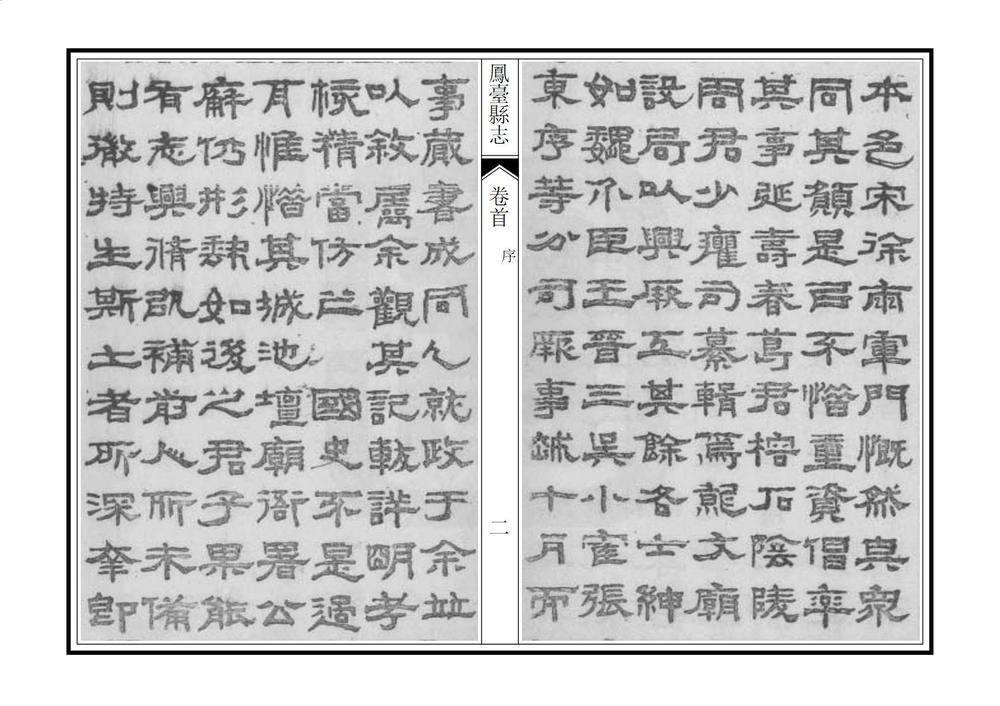 本邑宋徐兩軍門慨然與衆
同其願是㠯不惜重資倡率
其事延壽春葛君榕石陰陵
周君少癯司纂輯爲就文廟
設局以興厥工其餘各士紳
如魏介臣王晉三吳小霍張
東序等分司厥事越十月而
鳳臺縣志
卷首
序
二
事蕆書成同人就政于余並
以敘屬余觀其記載詳明考
核精當仿之國史不是過
耳惟惜其城池壇廟衙署公
廨仍形缺如後之君子果能
有志興脩補前人所未備
則微特生斯土者所深幸即